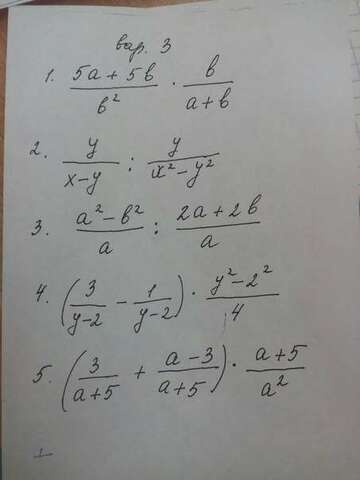 вар. 3
1. (5a + 5b)/b² · b/(a + b)
2. y/(x - y) : y/(x² - y²)
3. (a² - b²)/a : (2a + 2b)/a
4. (3/(y-2) - 1/(y-2)) · (y² - 2²)/4
5. (3/(a+5) + (a-3)/(a+5)) · (a+5)/a²